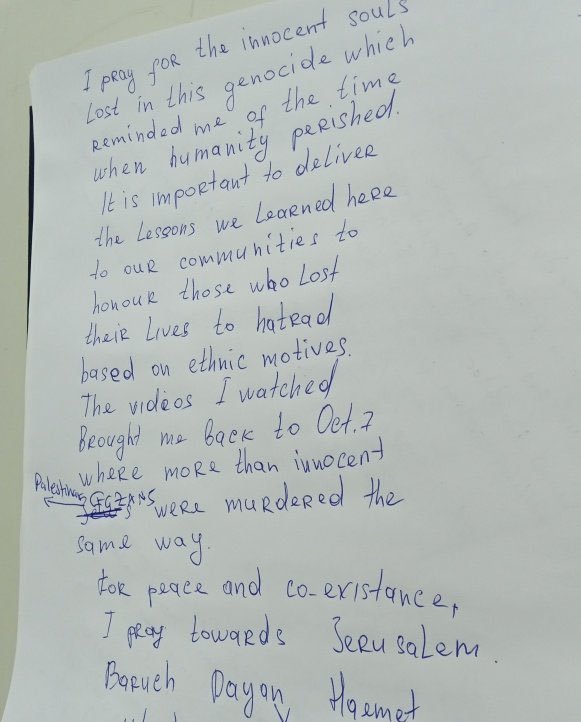 I pray for the innocent souls
Lost in this genocide which
reminded me of the time
when humanity perished.
It is important to deliver
the Lessons we Learned here
to our communities to
honour those who Lost
their Lives to hatrad
based on ethnic motives.
The videos I watched
Brought me Back to Oct. 7
where more than innocent
Palestinians GAZANS were murdered the
same way.
For peace and co-existance,
I pray towards Jerusalem.
Baruch Dayan Haemet